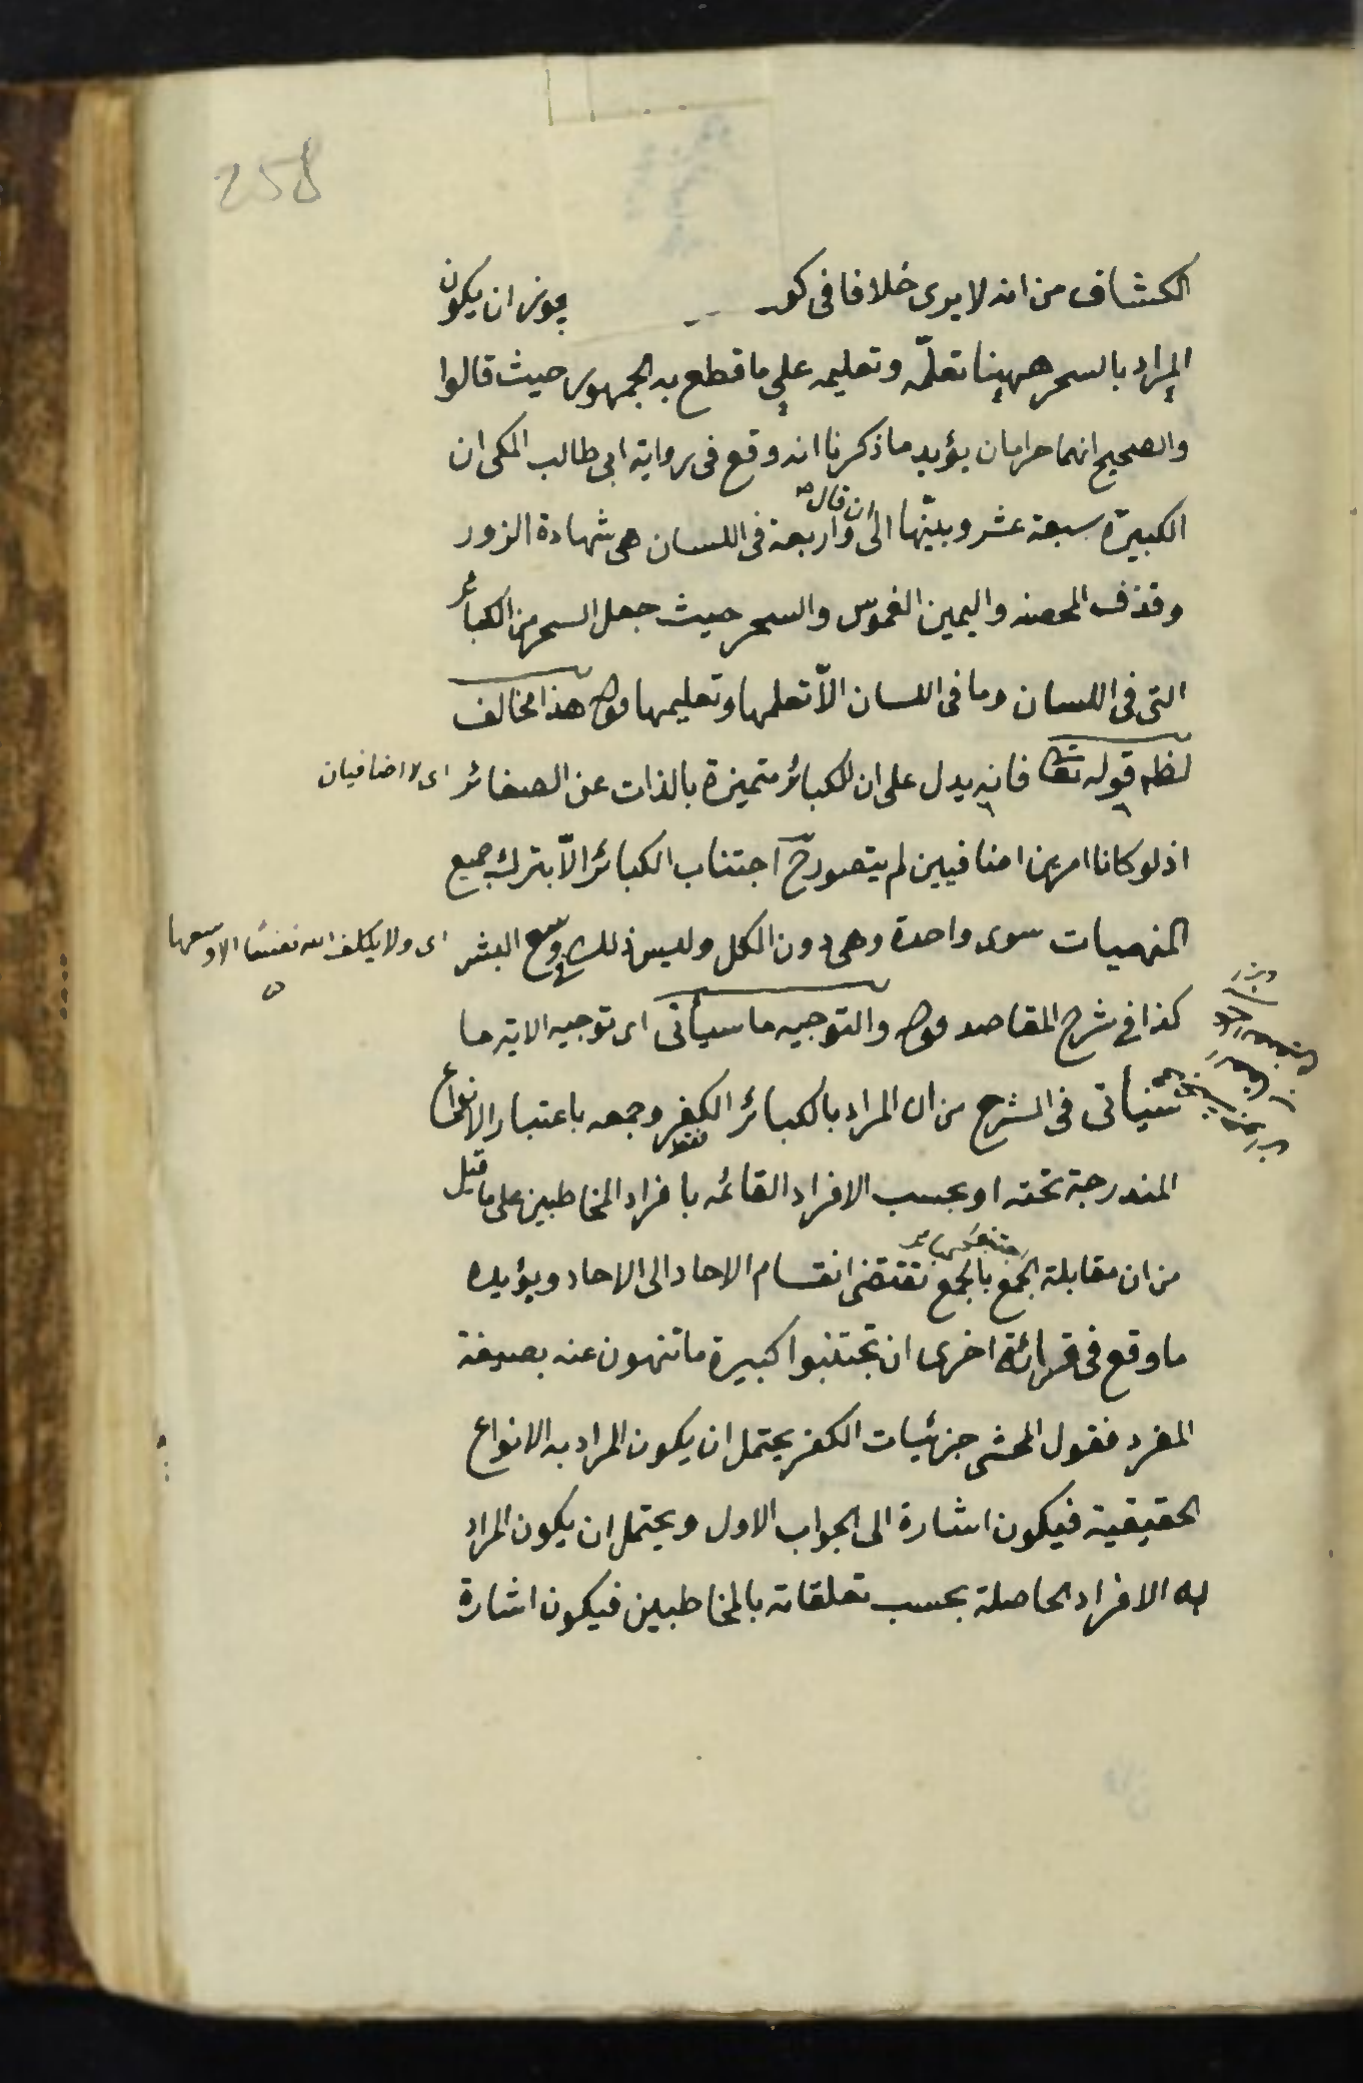 258
الكشاف من انه لا يرى خلافا فى كو يجوز ان يكون
المراد بالسحر ههنا تعلّمه وتعليمه على ما قطع به الجمهور حيث قالوا
والصحيح انهما حرامان يؤيد ما ذكرنا انه وقع فى رواية ابى طالب المكى ان
الكبيرة سبعة عشر وبيّنها الى ان قال واربعة فى اللسان هى شهادة الزور
وقذف المحصنه واليمين الغموس والسحر حيث جعل السحر من الكبائر
التى فى اللسان وما فى اللسان الّا تعلمها وتعليمها قوله هذا مخالف
لظ قوله تعا فانه يدل على ان الكبائر متميزة بالذات عن الصغائر
اى لا اضافيان
اذ لو كانا امرين اضافيين لم يتصور ح اجتناب الكبائر الّا بترك جميع
المنهيات سوى واحدة وهى دون الكل وليس ذلك فى وسع البشر
اى ولا يكلف الله نفسًا الا وسعها
كذا فى شرح المقاصد قوله والتوجيه ما سيأتى اى توجيه الاية ما
سيأتى فى الشرح من ان المراد بالكبائر الكفر وجمعه باعتبار الانواع
المندرجة تحته او بحسب الافراد القائمه بافراد المخاطبين على ما قيل
من ان مقابلة الجمع بالجمع تقتضى انقسام الاحاد الى الاحاد ويؤيده
ما وقع فى قرائة اخرى ان تجتنبوا كبيرة ما تنهون عنه بصيغة
المفرد فقول المحشى جزئيات الكفر يحتمل ان يكون المراد به الانواع
الحقيقية فيكون اشارة الى الجواب الاول ويحتمل ان يكون المراد
به الافراد الحاصلة بحسب تعلقاته بالمخاطبين فيكون اشارة